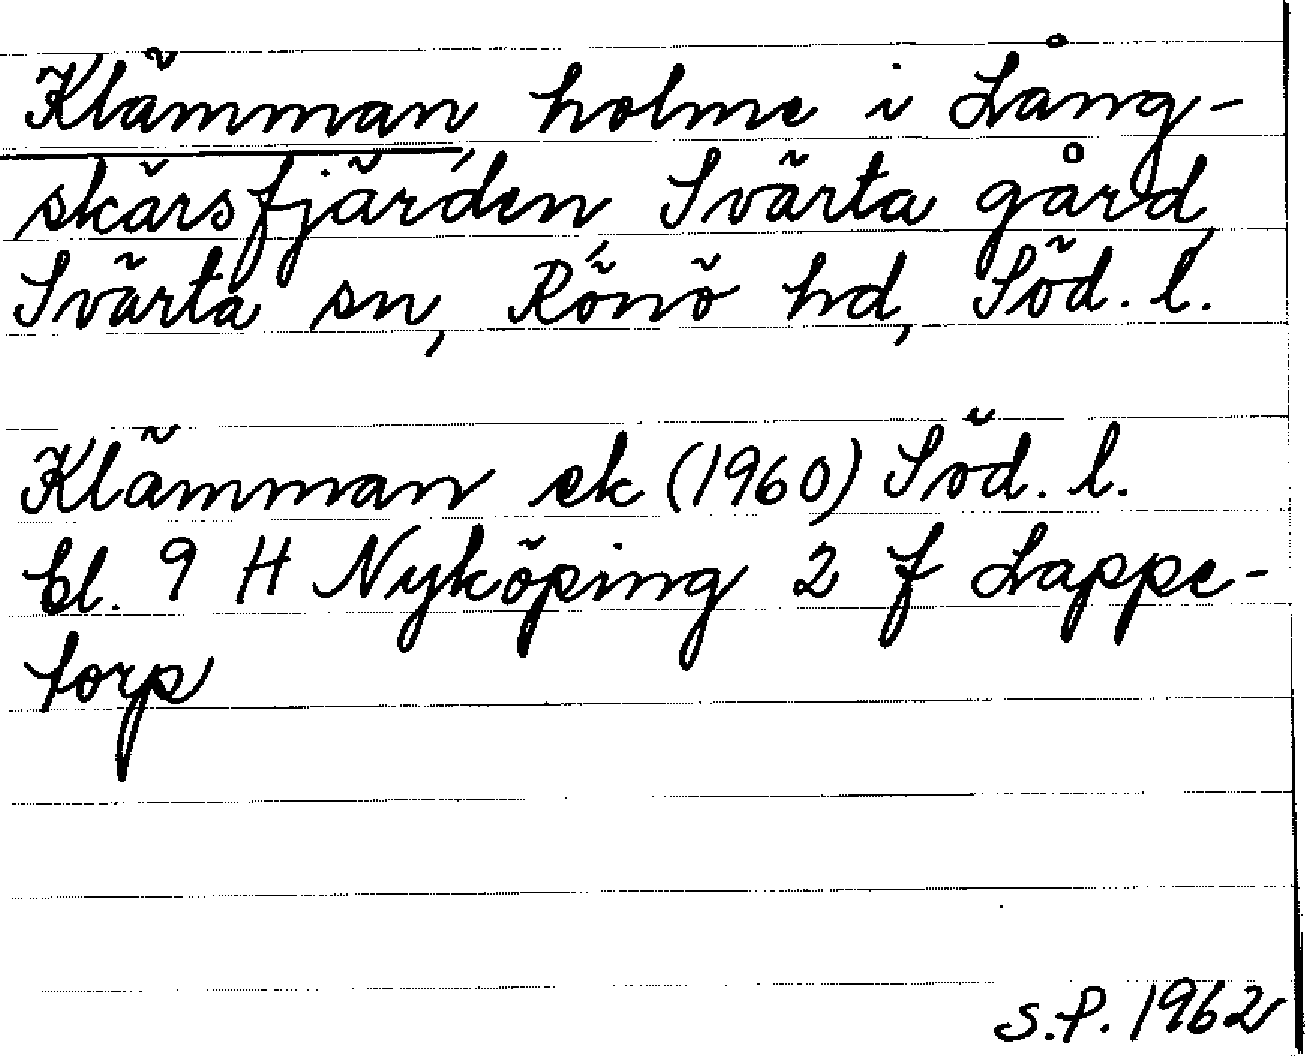 Klämman, holme i Lång-
skärsfjärden, Svärta gård,
Svärta sn, Rönö hd, Söd. l.
Klämman ek (1960) Söd. l.
bl. 9 H Nyköping 2 f Lappe-
torp
S.P. 1962